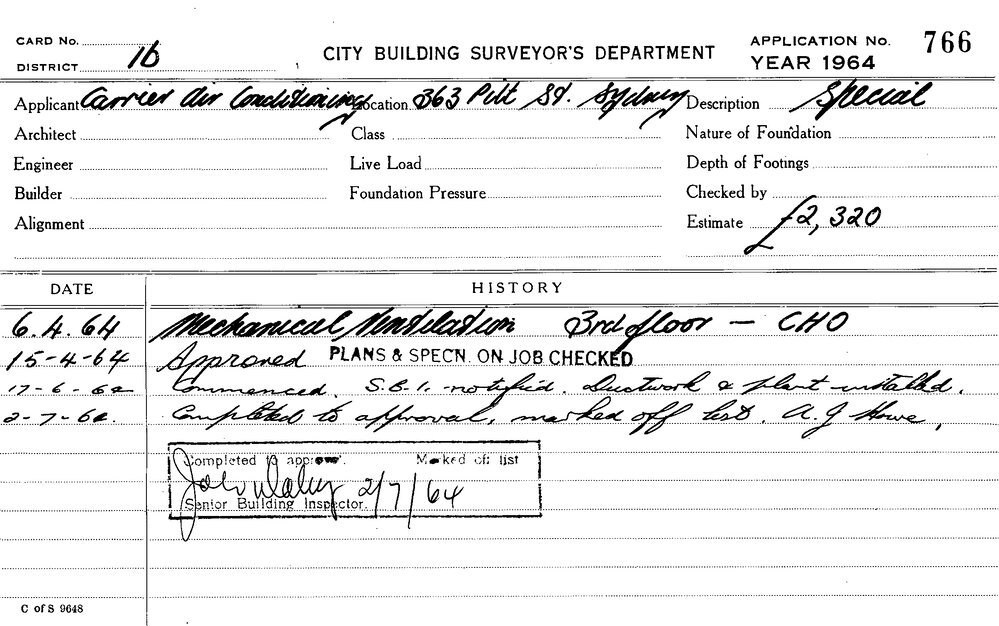 CARD No.
DISTRICT 1b
CITY BUILDING SURVEYOR'S DEPARTMENT
APPLICATION No. 766
YEAR 1964
Applicant Carrier Air Conditioning Location 363 Pitt St. Sydney Description Special
Architect Class Nature of Foundation
Engineer Live Load Depth of Footings
Builder Foundation Pressure Checked by
Alignment Estimate £2,320
DATE HISTORY
6.4.64 Mechanical Ventilation 3rd floor — CHO
15-4-64 Approved PLANS & SPECN. ON JOB CHECKED
17-6-64 Commenced. S.B.I. notified. Ductwork & plant installed.
2-7-64. Completed to approval, marked off list. A.J Howe,
Completed to approval. Marked off list
2/7/64
Senior Building Inspector.
C of S 9648